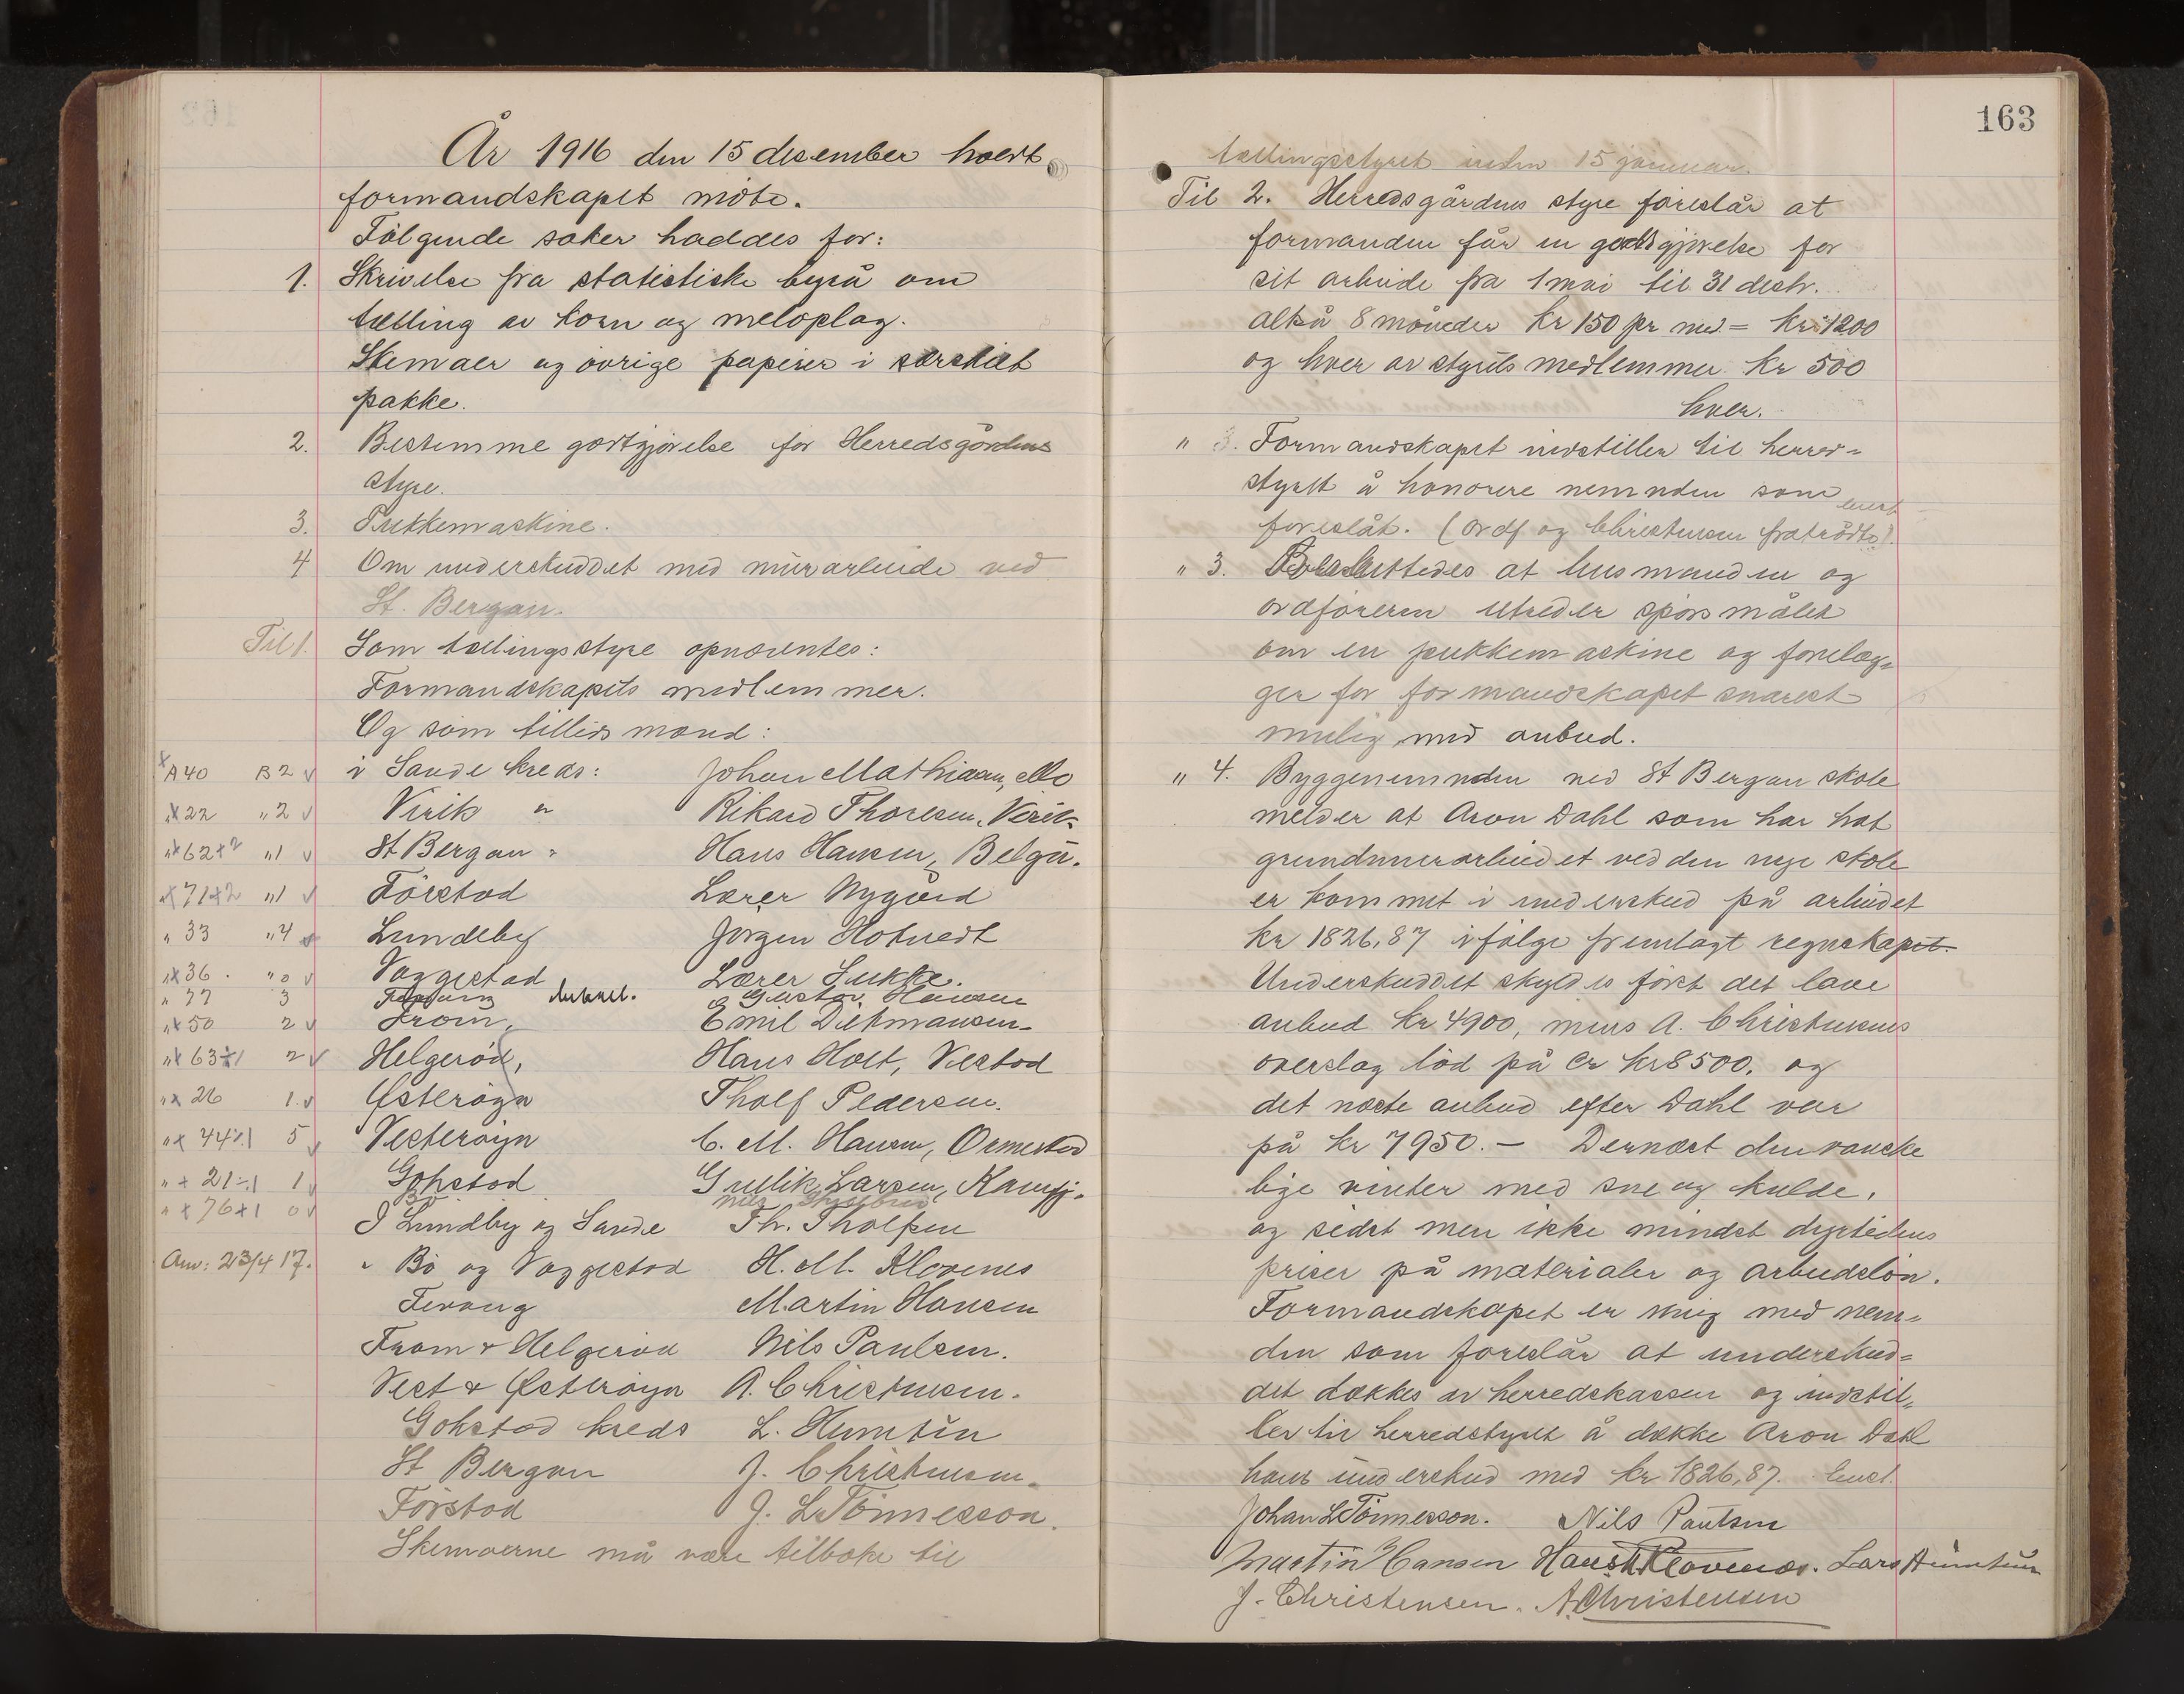 År 1916 den 15 desember holdt
formandskapet möte.
Fölgende saker haddes for:
1. Skrivelse fra statistiske byrå om
tælling av korn og meloplag.
Skemaer og övrige papirer i særskilt
pakke.
2. Bestemme godtgjörelse for Herredsgårdens
styre.
3. Pukkemaskine.
4 Om underskuddet med murarbeide ved
St. Bergan.
Til 1. Som tællingsstyre opnævntes:
Formandskapets medlemmer.
Og som tillidsmænd:
A 40 B 2 v i Sande kreds: Johan Mathisen, Mo
" x 22 " 2 v Virik " Rikard Thoresen, Virik
" x 62+2 " 1 v St Bergan " Hans Hansen, Belgu.
" x 71+2 " 1 v Förstad Lærer Nygård
" 33 " 4 v Lundeby Jörgen Hotvedt
" x 36. " 0 v Vaggestad Lærer Lukke.
" 77 3 Gustav Hansen
" x 50 2 v Fram, Emil Ditmansen
" x 63÷1 2 v Helgeröd, Hans Holt, Vestad
" x 26 1. v Østeröya Tholf Pedersen.
" x 44÷1 5 v Vesteröya C. M. Hansen, Ormestad
" + 21÷1 1 v Gokstad Gullik Larsen, Kamfj.
" x 76+1 0 v Bö Nils
I Lundby og Sande Th. Tholfsen
Anv: 23/4 17. " Bö og Vaggestad H. M. Klavenes
Fevang Martin Hansen
Fram & Helgeröd Nils Paulsen.
Vest & Østeröya A. Christensen.
Gokstad kreds L. Hemtun
St Bergan J. Christensen.
Förstad J. L. Tönnesson.
Skemaerne må være tilbake til
163
tællingsstyret inden 15 januar.
Til 2. Herredsgårdens styre foreslår at
formanden får en godtgjörelse for
sit arbeide fra 1 mai til 31 desbr.
altså 8 måneder Kr 150 pr md = Kr 1200
og hver av styrets medlemmer Kr 500
hver.
" 3. Formandskapet indstiller til herred-
styret å honorere nemnden som
foreslåt. (Ordf og Christensen fratrådte). enst
" 3. Besluttedes at husmanden og
ordföreren utreder spörsmålet
om en pukkemaskine og forelæg-
ger for formandskapet snarest
mulig med anbud.
" 4. Byggenemnden ved St Bergan skole
melder at Aron Dahl som har hat
grundmurarbeidet ved den nye skole
er kommet i underskud på arbeidet
kr 1826,87 ifölge fremlagt regnskapet.
Underskuddet skyldes först det lave
anbud kr 4900, mens A. Christensens
overslag löd på Ca kr 8500. og
det næste anbud efter Dahl var
på kr 7950.- Dernæst den vanske
lige vinter med sne og kulde,
og sidst men ikke mindst dyrtidens
priser på materialer og arbeidslön.
Formandskapet er enig med nem-
den som foreslår at underskud-
det dækkes av herredskassen og indstil-
ler til herredstyret å dække Aron Dahl
hans underskud med kr 1826,87. Enst.
Johan L Tönnesson. Nils Paulsen
Martin Hansen Hans M Klavenes. Lars Hemtun
J. Christensen. A. Christensen